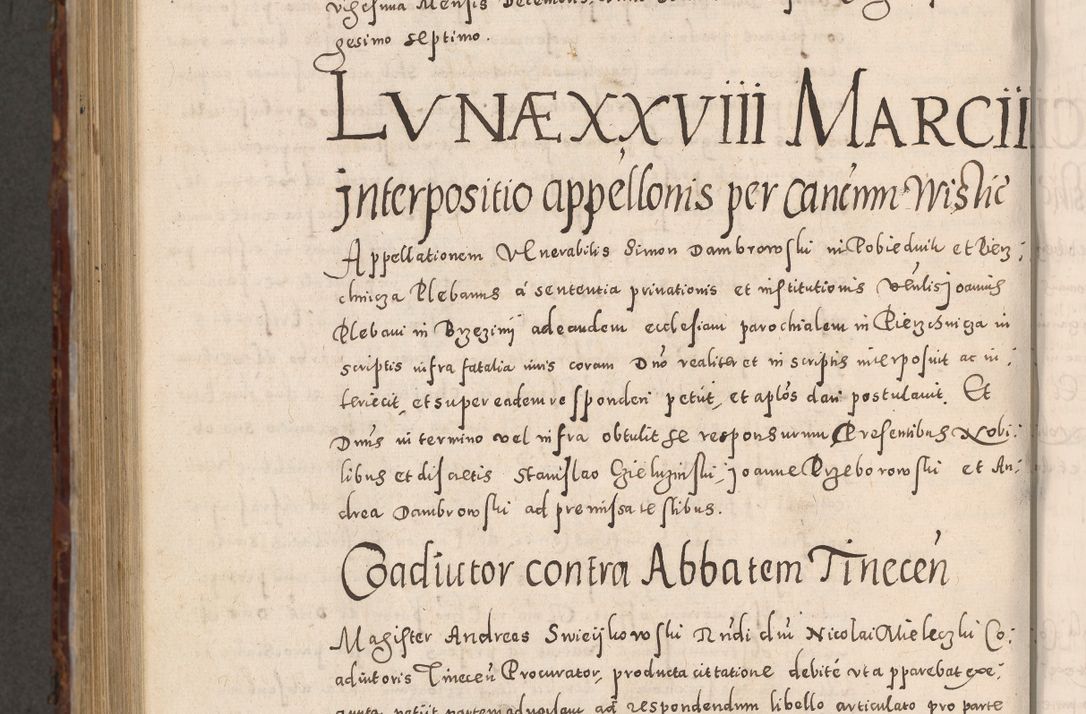 gesimo septimo.
LVNÆ XXVIII MARCII
Interpositio appellonis per Cancum Wislic
Appellationem Venerabilis Simon Dambrowski in Pobiednik et Pierz;
chnicza Plebanus á sententia privationis et institutionis Venlis Joannis
Plebani in Brzeziny ad eandem ecclesiam parochialem in Pierzchnicza in
scriptis infra fatalia iuris coram Dno realiter et in scriptis interposuit ac in;
teriecit, et super eadem responderi petiit, et aplos dari postulavit. Et
Dnus in termino vel infra obtulit se responsurum Presentibus Nobi:
libus et discretis Stanislao Gieluzinski, Joanne Przeborowski et An;
drea Dambrowski ad premissa testibus.
Coadiutor contra Abbatem Tinecen
Magister Andreas Swieykowski Rndi dni Nicolai Mieleczki Co;
adiutoris Tinecen Procurator, producta cittatione debite uta pparebat exe;
petiit partem adversam ad respondendum libello articulato pro parte